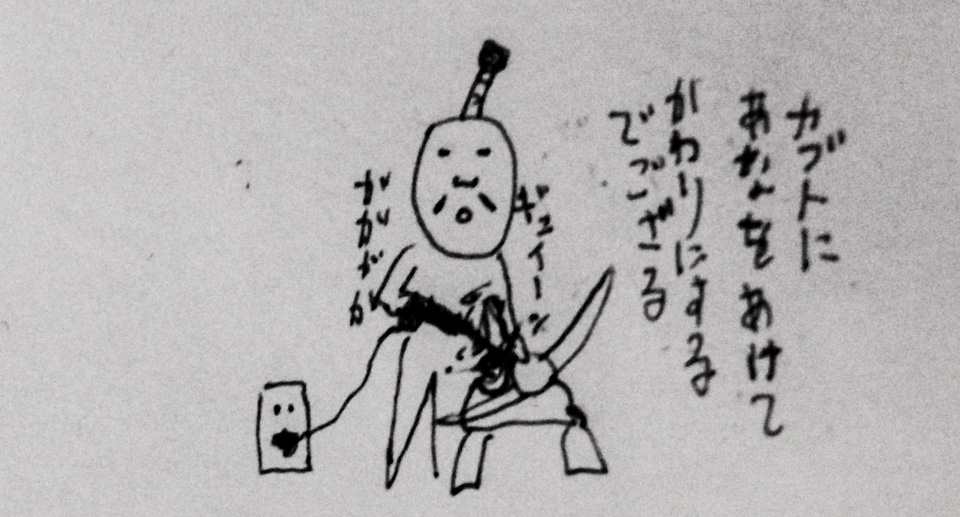 カブトに
あなをあけて
がわりにする
でござる
ギュイーン
ガガガガ